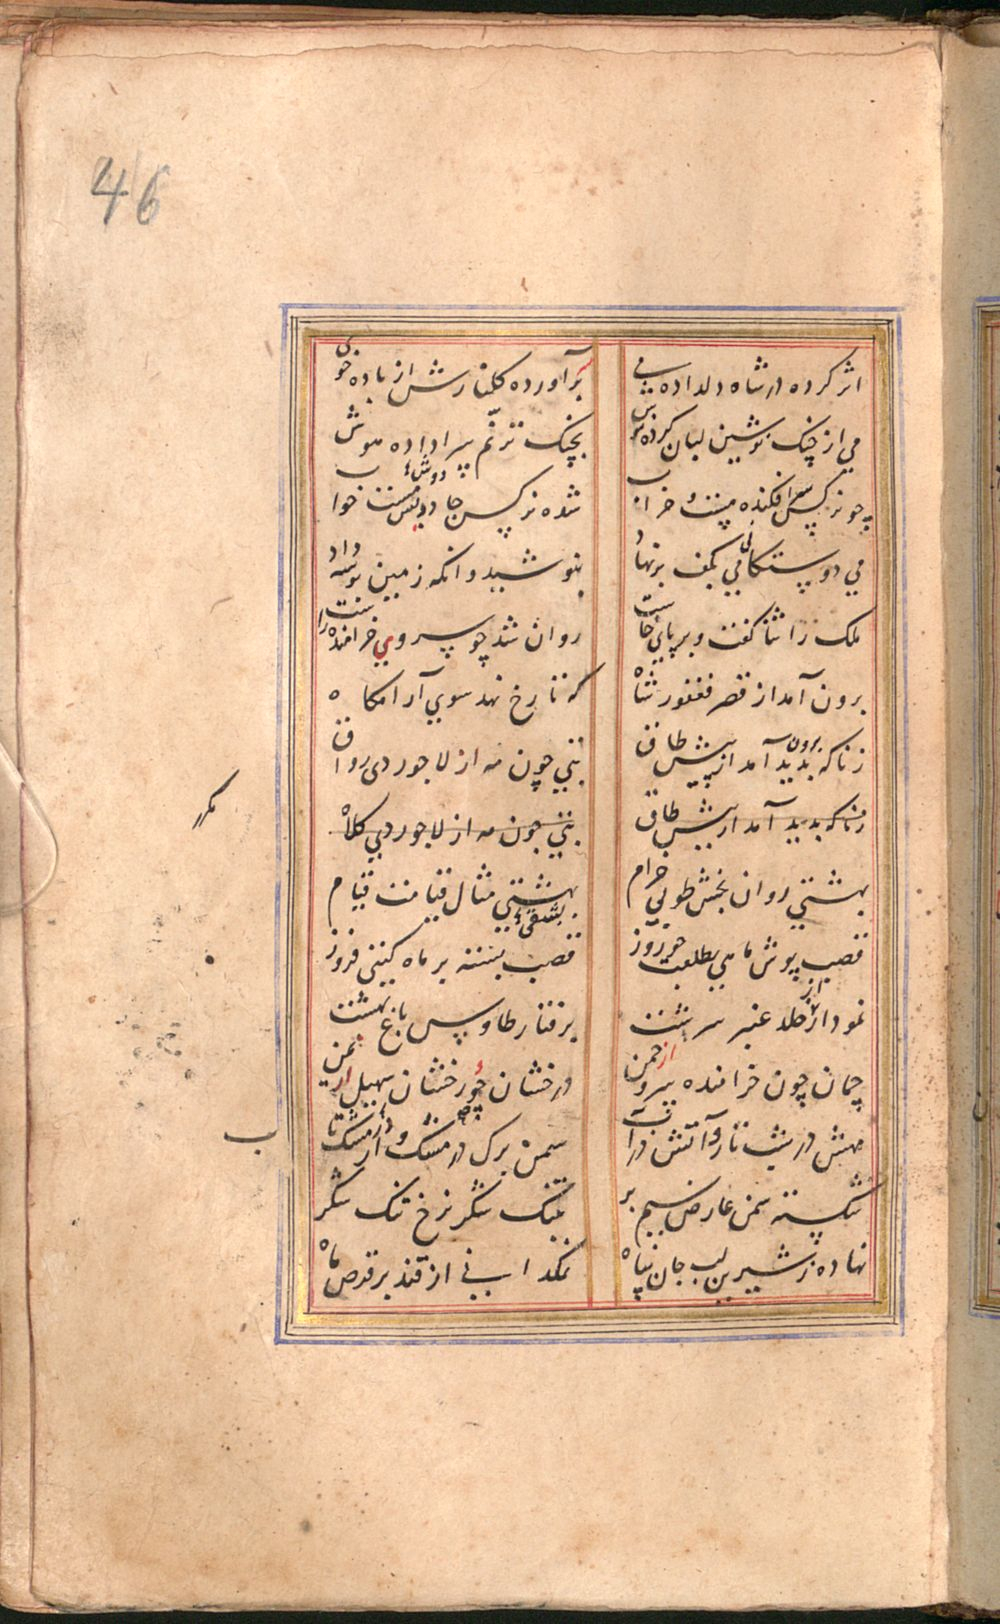 46
اثر کرده در شاه دلداده می
برآورده کلنارش از باده خوی
می از چنک نوشین لبان کرده نوش
بچنک ترنم سپر داده هوش
چو نرکس سر افکنده مست و خراب
شده نرکس جادویش مست خواب
می دوستکانی بکف برنهاد
بنوشید وانکه زمین بوسه داد
ملک را ثنا کفت و بر پای خاست
روان شد چو سروی خرامنده راست
برون آمد از قصر فغفور شاه
که تا رخ نهد سوی آرامکاه
زناکه بدید آمد از پیش طاق
برون
بتی چون مه از لاجوردی رواق
زناکه بدید آمد از پیش طاق
بتی چون مه از لاجوردی کلاه
مکرر
بهشتی روان بخش طوبی خرام
بهشتی مثال قیامت قیام
قصب پوش ماهی بطلعت چو روز
قصب بسته بر ماه کیتی فروز
نمودار خلد عنبر سرشت
از
برفتار طاوس باغ بهشت
چمان چون خرامنده سرو از چمن
درخشان چو رخشان سهیل از یمن
مهش در شب تار و آتش در آب
سمن برک در مشک و
شکسته سمن عارض سیم بر
بتنک شکر نرخ تنک شکر
نهاده ز شیرین لب جان پناه
نمکدانی از قند بر قرص ماه